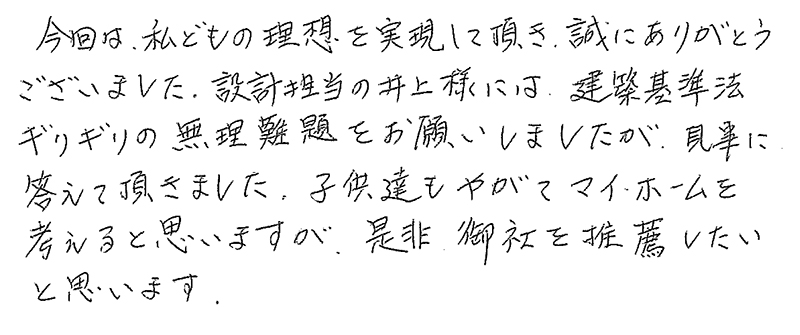 今回は、私どもの理想を実現して頂き、誠にありがとう
ございました。設計担当の井上様には、建築基準法
ギリギリの無理難題をお願いしましたが、見事に
答えて頂きました。子供達もやがてマイ・ホームを
考えると思いますが、是非御社を推薦したい
と思います。